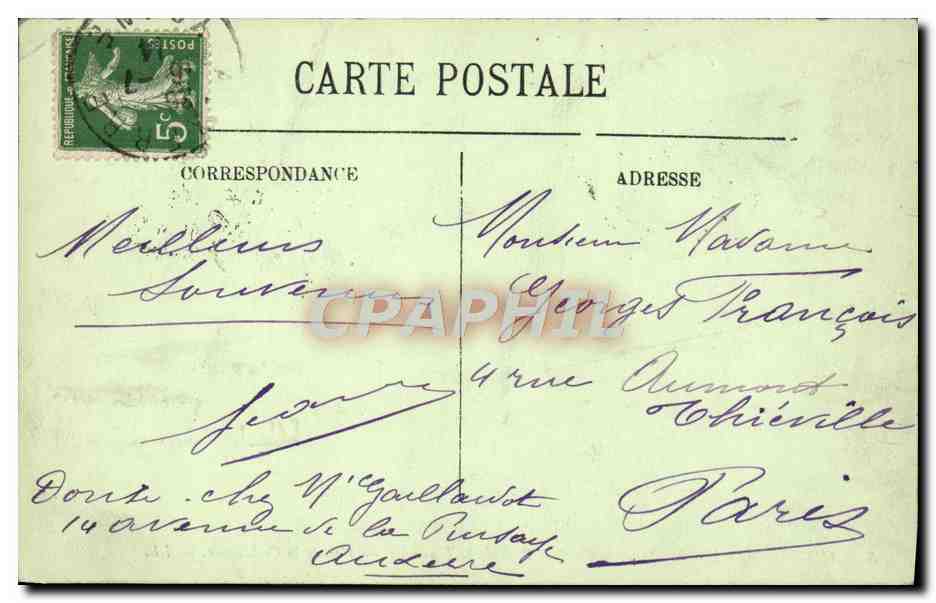 REPUBLIQUE FRANCAISE
POSTES
5c
CARTE POSTALE
CORRESPONDANCE
Meilleurs
Souvenirs
Jeanne
Doute chez Mr Gaillardot
14 avenue de la
Auxerre
ADRESSE
Monsieur Madame
Georges François
4 rue Aumont
Thiéville
Paris
CPAPHIL